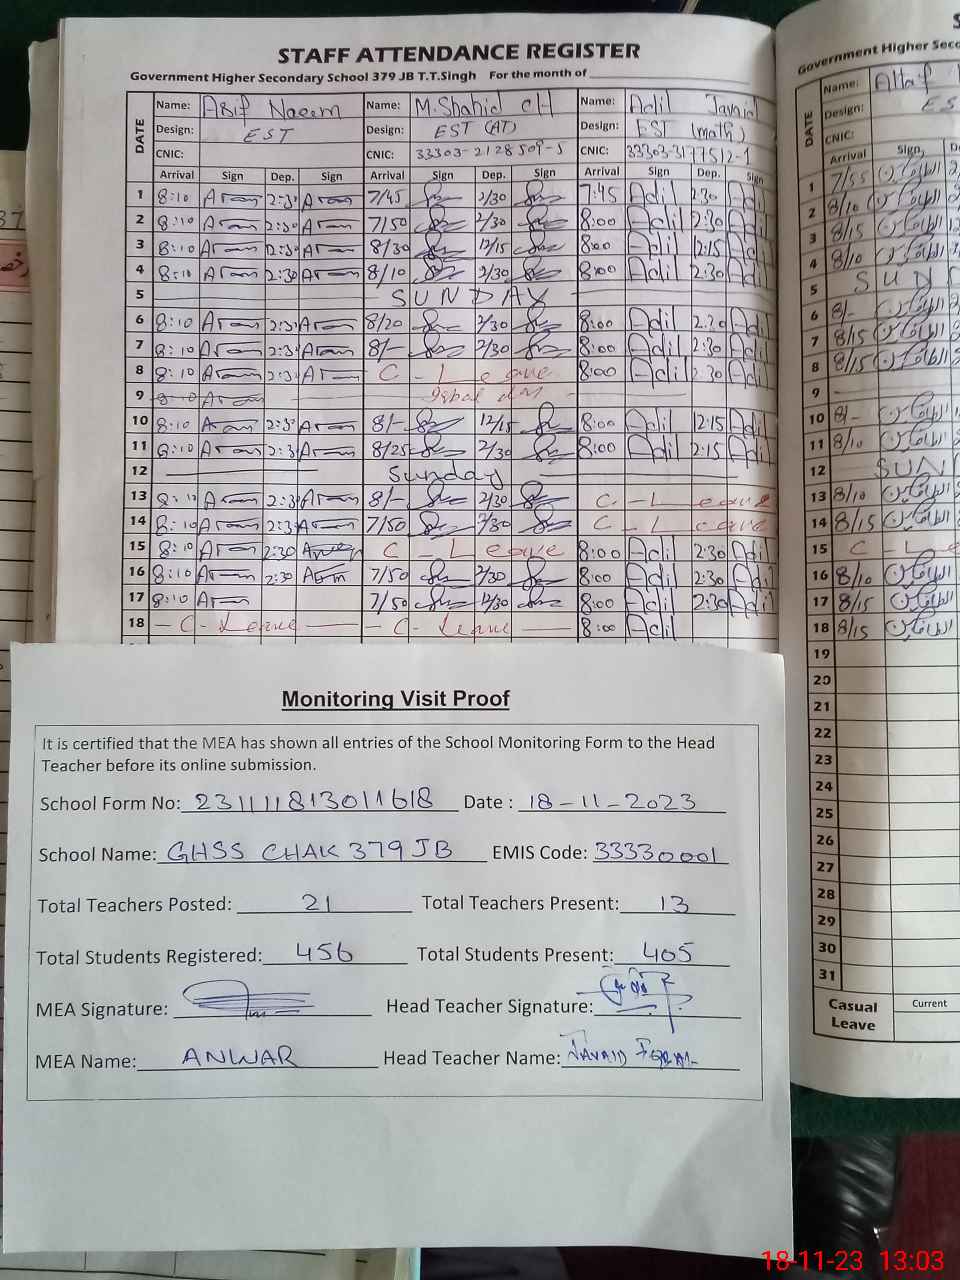 STAFF ATTENDANCE REGISTER
Government Higher Secondary School 379 JB T.T.Singh For the month of
DATE
Name: Arif Naeem Name: M.Shahid CH Name: Adil Javaid
Design: EST Design: EST (AT) Design: EST (math)
CNIC: CNIC: 33303-2128509-5 CNIC: 33303-3177512-1
Arrival Sign Dep. Sign Arrival Sign Dep. Sign Arrival Sign Dep. Sign
1 8:10 2:3 7/45 2/30 7:45 Adil 2:30 Adil
2 8:10 2:30 7/50 2/30 8:00 Adil 2:30 Adil
3 8:10 2:3 8/30 12/15 8:00 Adil 12:15 Adil
4 8:10 2:30 8/10 2/30 8:00 Adil 2:30 Adil
5 SUNDAY
6 8:10 2:3 8/20 2/30 8:00 Adil 2:30 Adil
7 8:10 2:3 8/- 2/30 8:00 Adil 2:30 Adil
8 8:10 2:3 C - Leave 8:00 Adil 2:30 Adil
9 8:10 Iqbal day
10 8:10 2:3 8/- 12/15 8:00 Adil 12:15 Adil
11 8:10 2:3 8/25 2/30 8:00 Adil 2:15 Adil
12 Sunday
13 8:10 2:3 8/- 2/30 C - Leave
14 8:10 2:3 7/50 2/30 C - Leave
15 8:10 2:30 C - Leave 8:00 Adil 2:30 Adil
16 8:10 2:30 7/50 2/30 8:00 Adil 2:30 Adil
17 8:10 7/50 12/30 8:00 Adil 2:30 Adil
18 - C - Leave - C - Leave 8:00 Adil
Government Higher Seco
DATE
Name: Altaf
Design: ES
CNIC:
Arrival Sign, D
1 7/55
2 8/10
3 8/15
4 8/10
5 SUND
6 8/-
7 8/15
8 8/15
9
10 8/-
11 8/10
12 SUN
13 8/10
14 8/15
15 C - Le
16 8/10
17 8/15
18 8/15
19
20
21
22
23
24
25
26
27
28
29
30
31
Casual Current
Leave
Monitoring Visit Proof
It is certified that the MEA has shown all entries of the School Monitoring Form to the Head
Teacher before its online submission.
School Form No: 231111813011618 Date : 18-11-2023
School Name: GHSS CHAK 379 JB EMIS Code: 33330001
Total Teachers Posted: 21 Total Teachers Present: 13
Total Students Registered: 456 Total Students Present: 405
MEA Signature: Head Teacher Signature:
MEA Name: ANWAR Head Teacher Name: JAVAID IQBAL
18-11-23 13:03